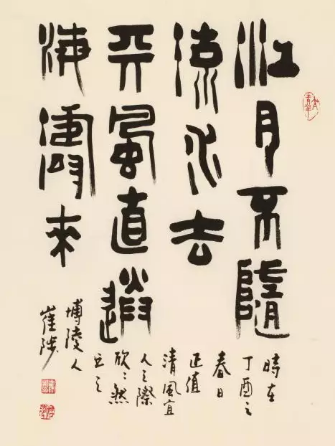 江月不隨
流水去
天風直送
海濤來
時在
丁酉之
春日
正值
清風宜
人之際
欣〻然
書之
博陵人
崔陟